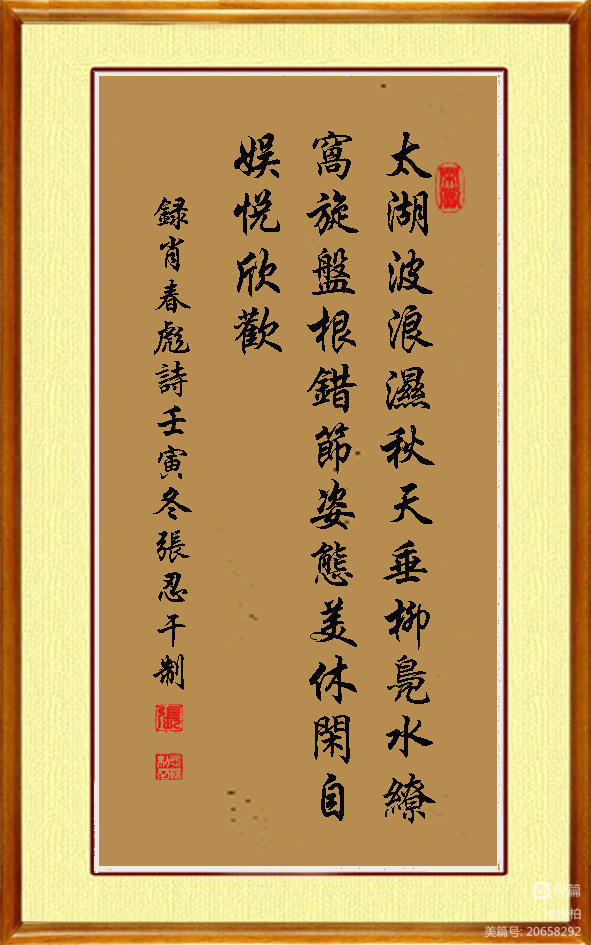 太湖波浪濕秋天垂柳鳧水繚
窩旋盤根錯節姿態美休閑自
娛悅欣歡
録肖春彪詩壬寅冬張忍干制
張
美篇号: 20658292